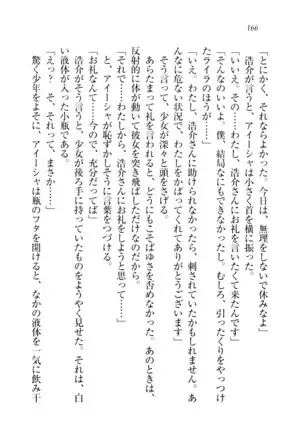 166
「とにかく、それならよかった。今日は、無理をしないで休みなよ」
　浩介が言うと、アイーシャは小さく首を横に振った。
「いいえ。わたし、浩介さんにお礼を言いたくて来たんです」
「そんなのいいよ。僕、結局なにもできなかったし。むしろ、引ったくりをやっつけ
たライラのほうが……」
「いいえ。わたし、浩介さんに助けられなかったら、刺されていたかもしれません。あ
んな危ない状況で、わたしなんかのために……本当にありがとうございます」
　そう言って、少女が深々と頭をさげる。
　あらたまって礼を言われると、どうにもこそばゆさを否めなかった。あのときは、
反射的に体が動いて彼女を突き飛ばしただけなのだから。
「それで……わたしから、浩介さんにお礼をしようと思って……」
と、アイーシャが恥ずかしそうに言葉をつづける。
「お礼なんて……今ので、充分だってば」
　浩介がそう言うと、少女が後ろ手に持っていたものをようやく見せた。それは、白
い液体が入った小瓶である。
「えっ？　そ、それって、まさか……」
　驚く少年をよそに、アイーシャは瓶のフタを開けると、なかの液体を一気に飲み干